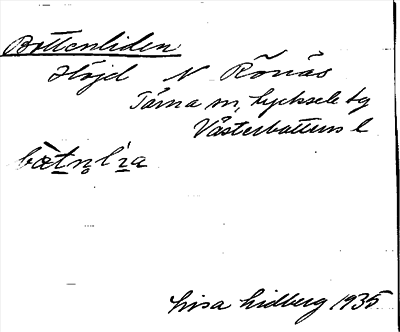 Bottenliden
Höjd N Rönäs
Tärna sn, Lycksele tg
Västerbottens l
bæ̀tn̥lìa
Lisa Lidberg 1935